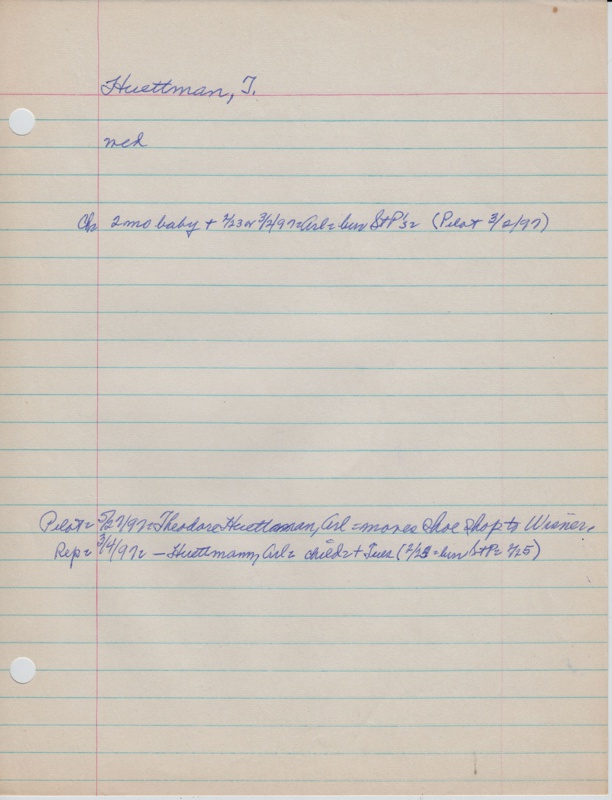 Huettman, T.
med
Ch 2 mo baby + 2/23 or 3/2/97 = Arl = bur St P's = (Pilot 3/6/97)
Pilot = 5/27/97 = Theodore Huettman, Arl = moves Shoe Shop to Wisner.
Rep = 3/4/97 = - Huettmann, Arl = child = + Tues (2/23 = bur St P = 2/25)